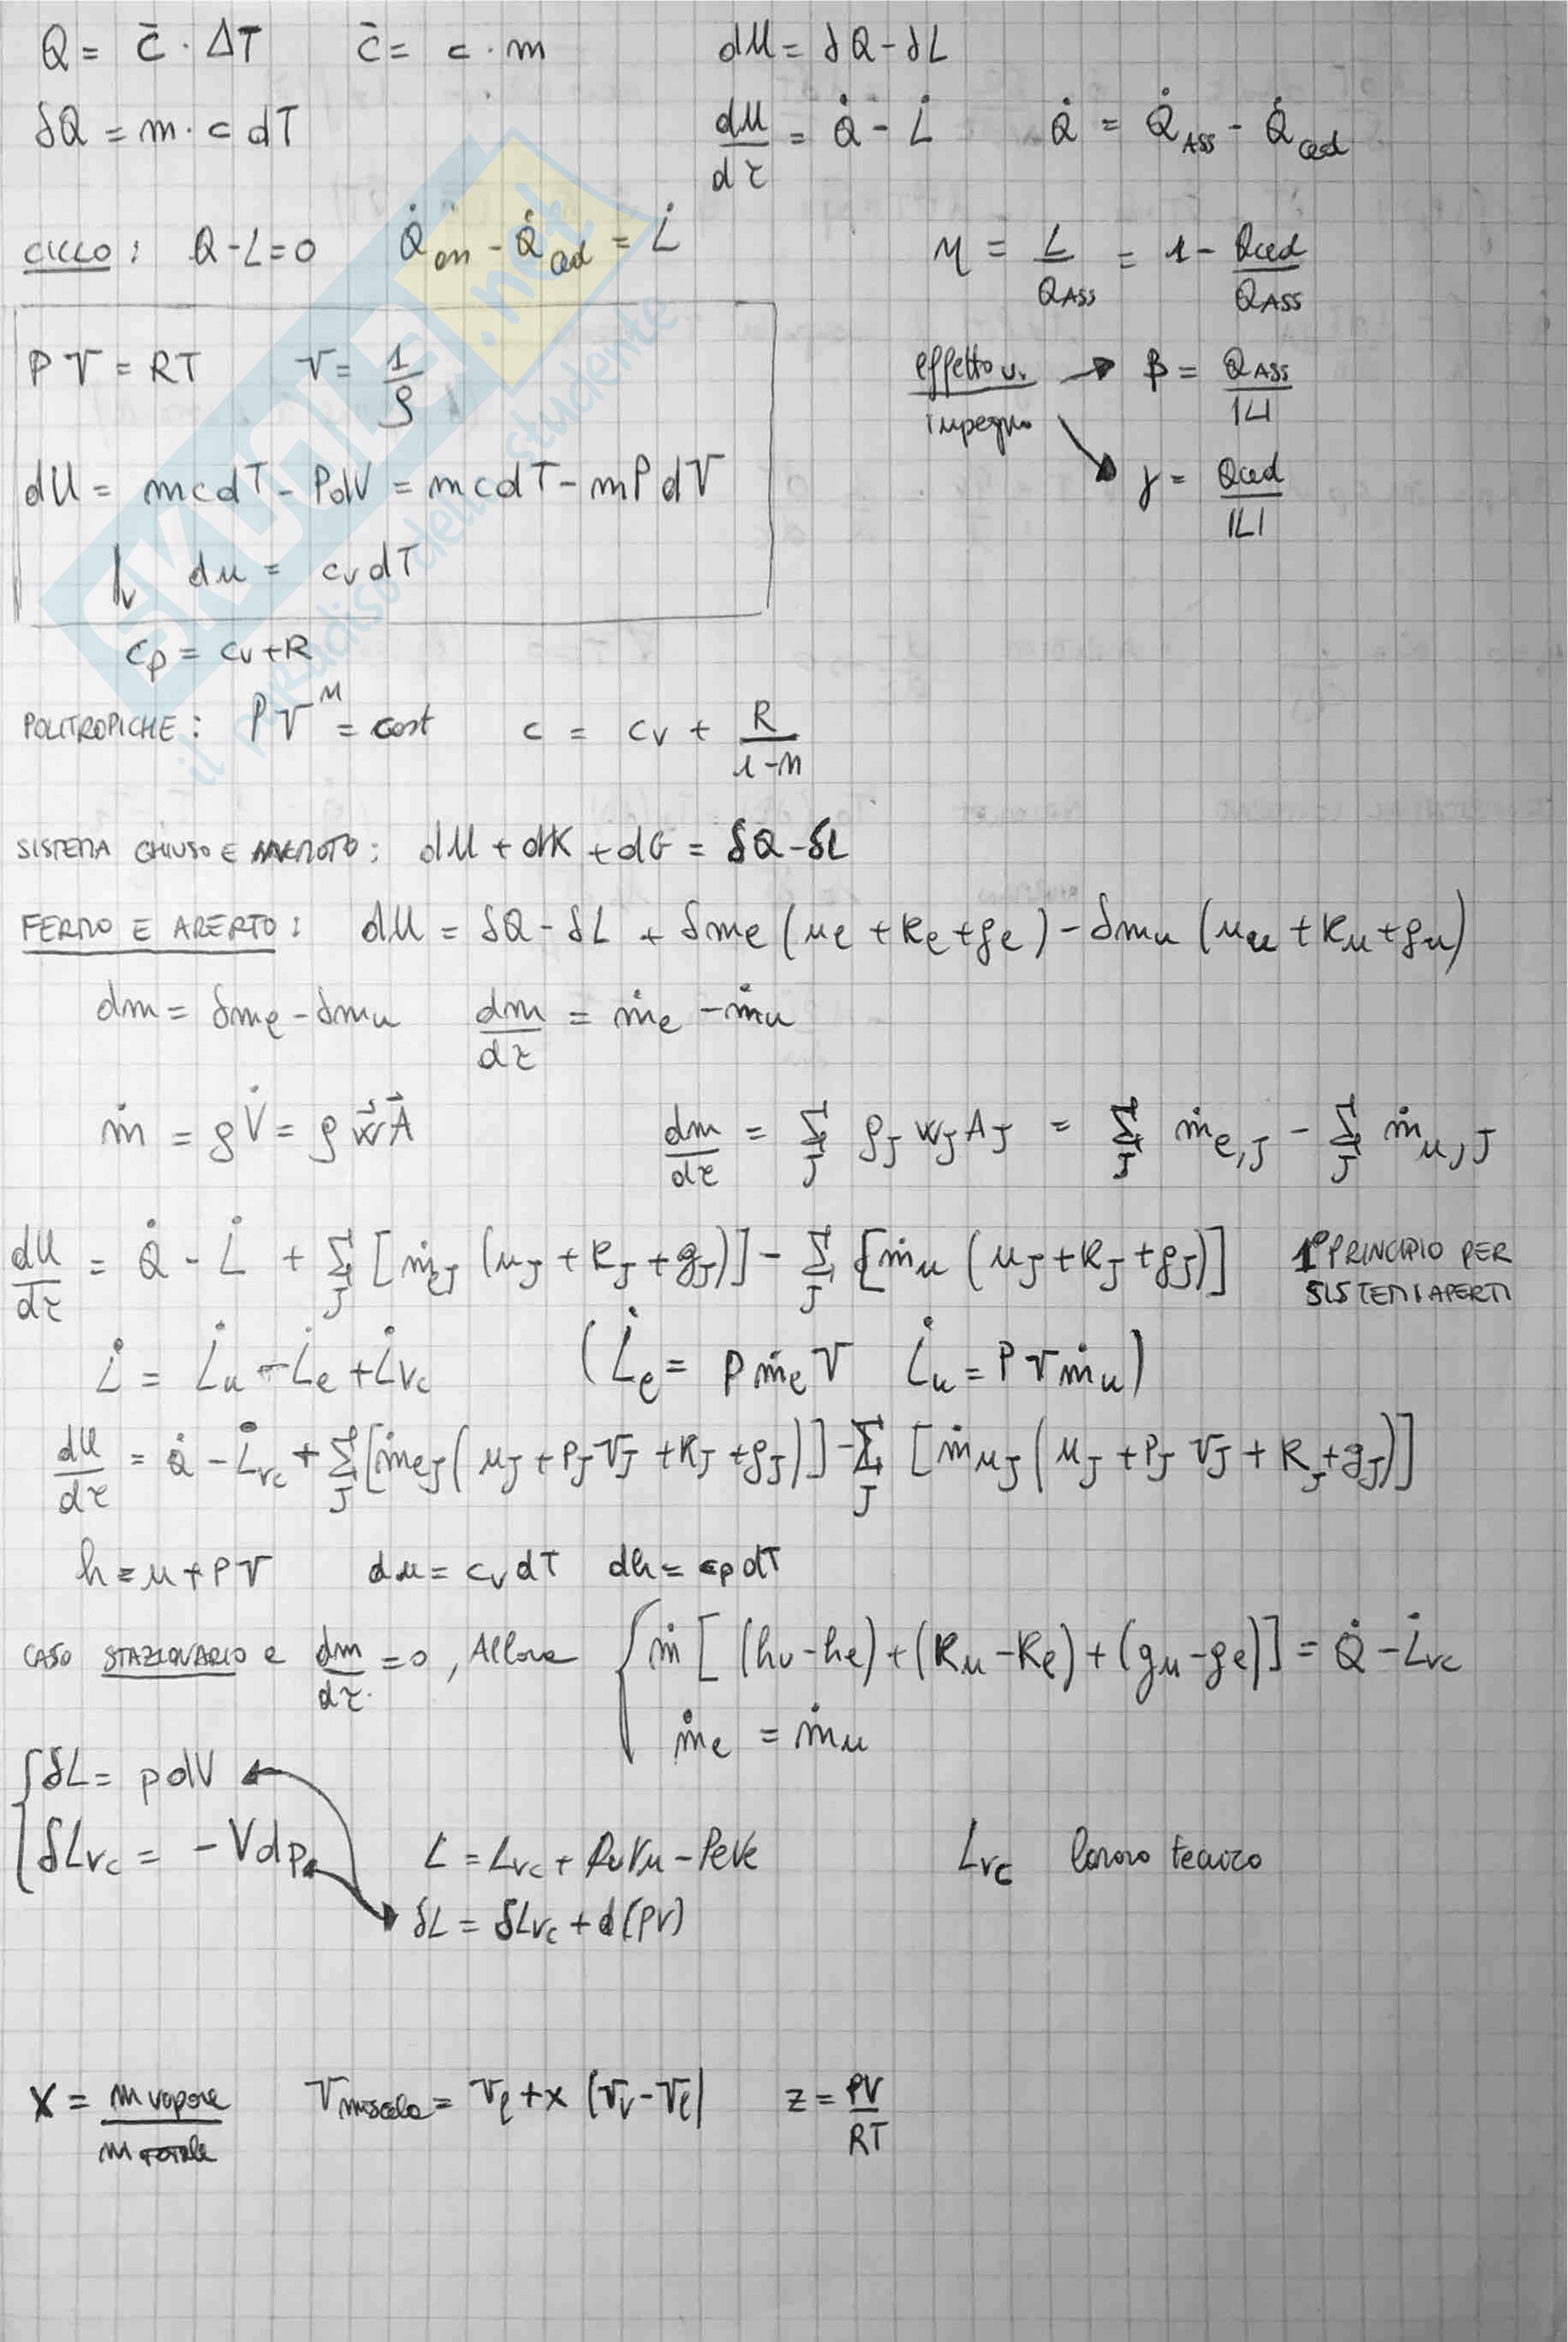 Q = c̄ · ΔT    c̄ = c · m    dU = δQ - δL
δQ = m · c dT    dU/dτ = Q̇ - L̇    Q̇ = Q̇ASS - Q̇ced
CICLO: Q - L = 0    Q̇ - Q̇ced = L̇    η = L/QASS = 1 - Qced/QASS
PV = RT    V = 1/ρ    effetto u./impegno → β = QASS/|L|
dU = mcdT - PdV = mcdT - mPdV    γ = Qced/|L|
du = cv dT
cp = cv + R
POLITROPICHE: PV^n = cost    c = cv + R/(1-n)
SISTEMA CHIUSO E IN MOTO: dU + dK + dG = δQ - δL
FERMO E APERTO: dU = δQ - δL + δme (ue + ke + ge) - δmu (uu + ku + gu)
dm = δme - δmu    dm/dτ = ṁe - ṁu
ṁ = ρV̇ = ρ w⃗ A⃗    dm/dτ = Σj ρj wj Aj = Σj ṁe,j - Σj ṁu,j
dU/dτ = Q̇ - L̇ + Σj [ṁej (uj + kj + gj)] - Σj [ṁu (uj + kj + gj)]    1° PRINCIPIO PER SISTEMI APERTI
L̇ = L̇u - L̇e + L̇vc    (L̇e = p ṁe V    L̇u = P V ṁu)
dU/dτ = Q̇ - L̇vc + Σj [ṁej (uj + pj Vj + kj + gj)] - Σj [ṁuj (uj + pj Vj + kj + gj)]
h = u + PV    du = cv dT    dh = cp dT
CASO STAZIONARIO e dm/dτ = 0, Allora { ṁ [(hu - he) + (ku - ke) + (gu - ge)] = Q̇ - L̇vc
ṁe = ṁu
{ δL = pdV
δLvc = - Vdp    L = Lvc + PuVu - PeVe    Lvc lavoro tecnico
δL = δLvc + d(pV)
X = m vapore/m totale    Vmiscela = Vl + x (Vv - Vl)    z = PV/RT
SKUOLA.net
il paradiso dello studente